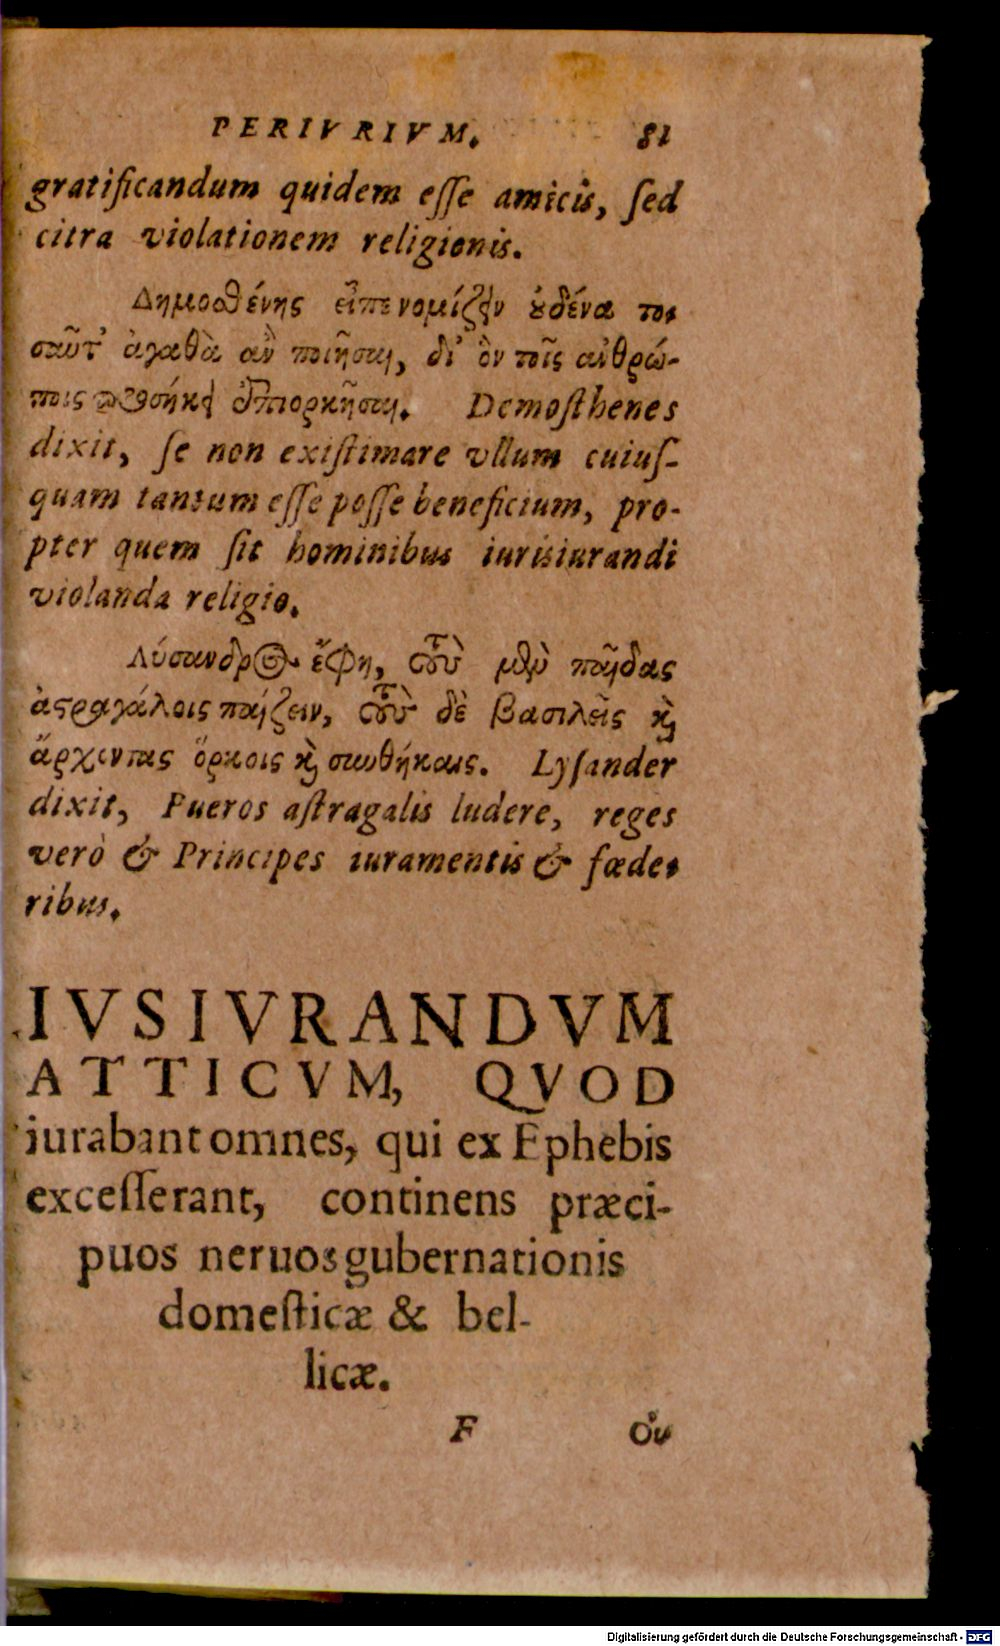 PERIVRIVM. 81
gratificandum quidem eſſe amicis, ſed
citra violationem religionis.
Δημοσθένης εἶπε νομίζειν ȣδένα το-
σαῦτ' ἀγαθὰ ἂν ποιῆσαι, δι' ὃν τοῖς ἀνθρώ-
ποις προσήκει ἐπιορκῆσαι. Demoſthenes
dixit, ſe non exiſtimare vllum cuiuſ-
quam tantum eſſe poſſe beneficium, pro-
pter quem ſit hominibus iurisiurandi
violanda religio.
Λύσανδρος ἔφη, τοὺς μὲν παῖδας
ἀστραγάλοις παίζειν, τοὺς δὲ βασιλεῖς καὶ
ἄρχοντας ὅρκοις καὶ συνθήκαις. Lyſander
dixit, Pueros aſtragalis ludere, reges
verò & Principes iuramentis & fœde-
ribus.
IVSIVRANDVM
ATTICVM, QVOD
iurabant omnes, qui ex Ephebis
exceſſerant, continens præci-
puos neruos gubernationis
domeſticæ & bel-
licæ.
F Οὐ
Digitalisierung gefördert durch die Deutsche Forschungsgemeinschaft - DFG